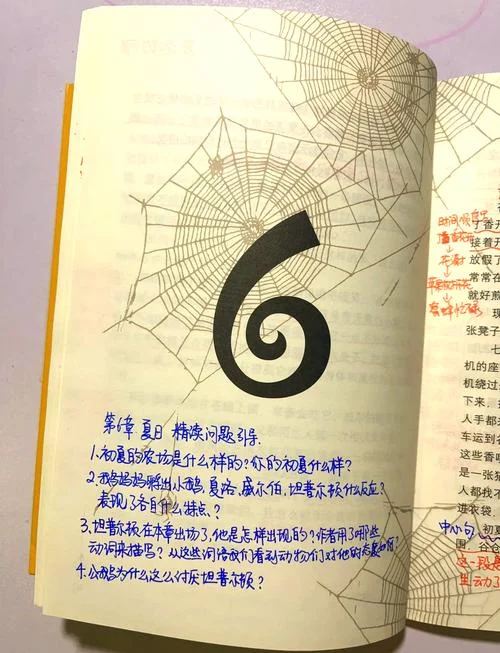 6
第6章 夏日 精读问题引导.
1.初夏的农场是什么样的?你的初夏什么样?
2.鹅妈妈孵出小鹅,夏洛,威尔伯,坦普尔顿什么反应?
表现了各自什么特点?
3.坦普尔顿在本章出场了,他是怎样出现的?作者用了哪些
动词来描写?从这些词语我们看到动物们对他的态度如何?
4.公鹅为什么这么讨厌坦普尔顿?
了香开
接着开
放假了
常常在
就好煎
现
张凳子
七
机的座
机绕过
下来.
人手都
车运到
这些香
是一张
人都我
进衣袋.
中心句 初夏
围.谷仓
这一段是
里动了